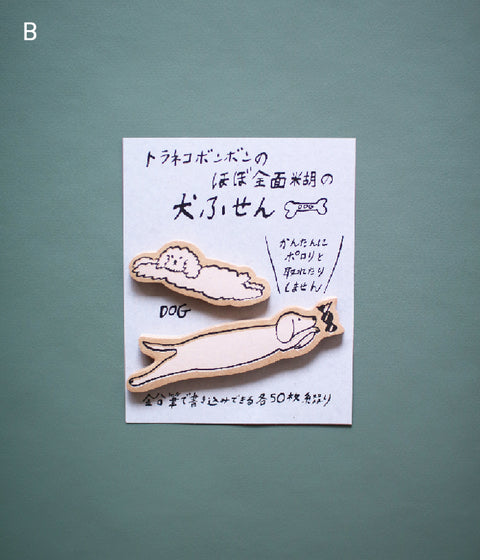 B
トラネコボンボンの
ほぼ全面糊の
犬ふせん
DOG
かんたんに
ポロリと
取れたり
しません!
DOG
鉛筆で書き込みできる各50枚綴り